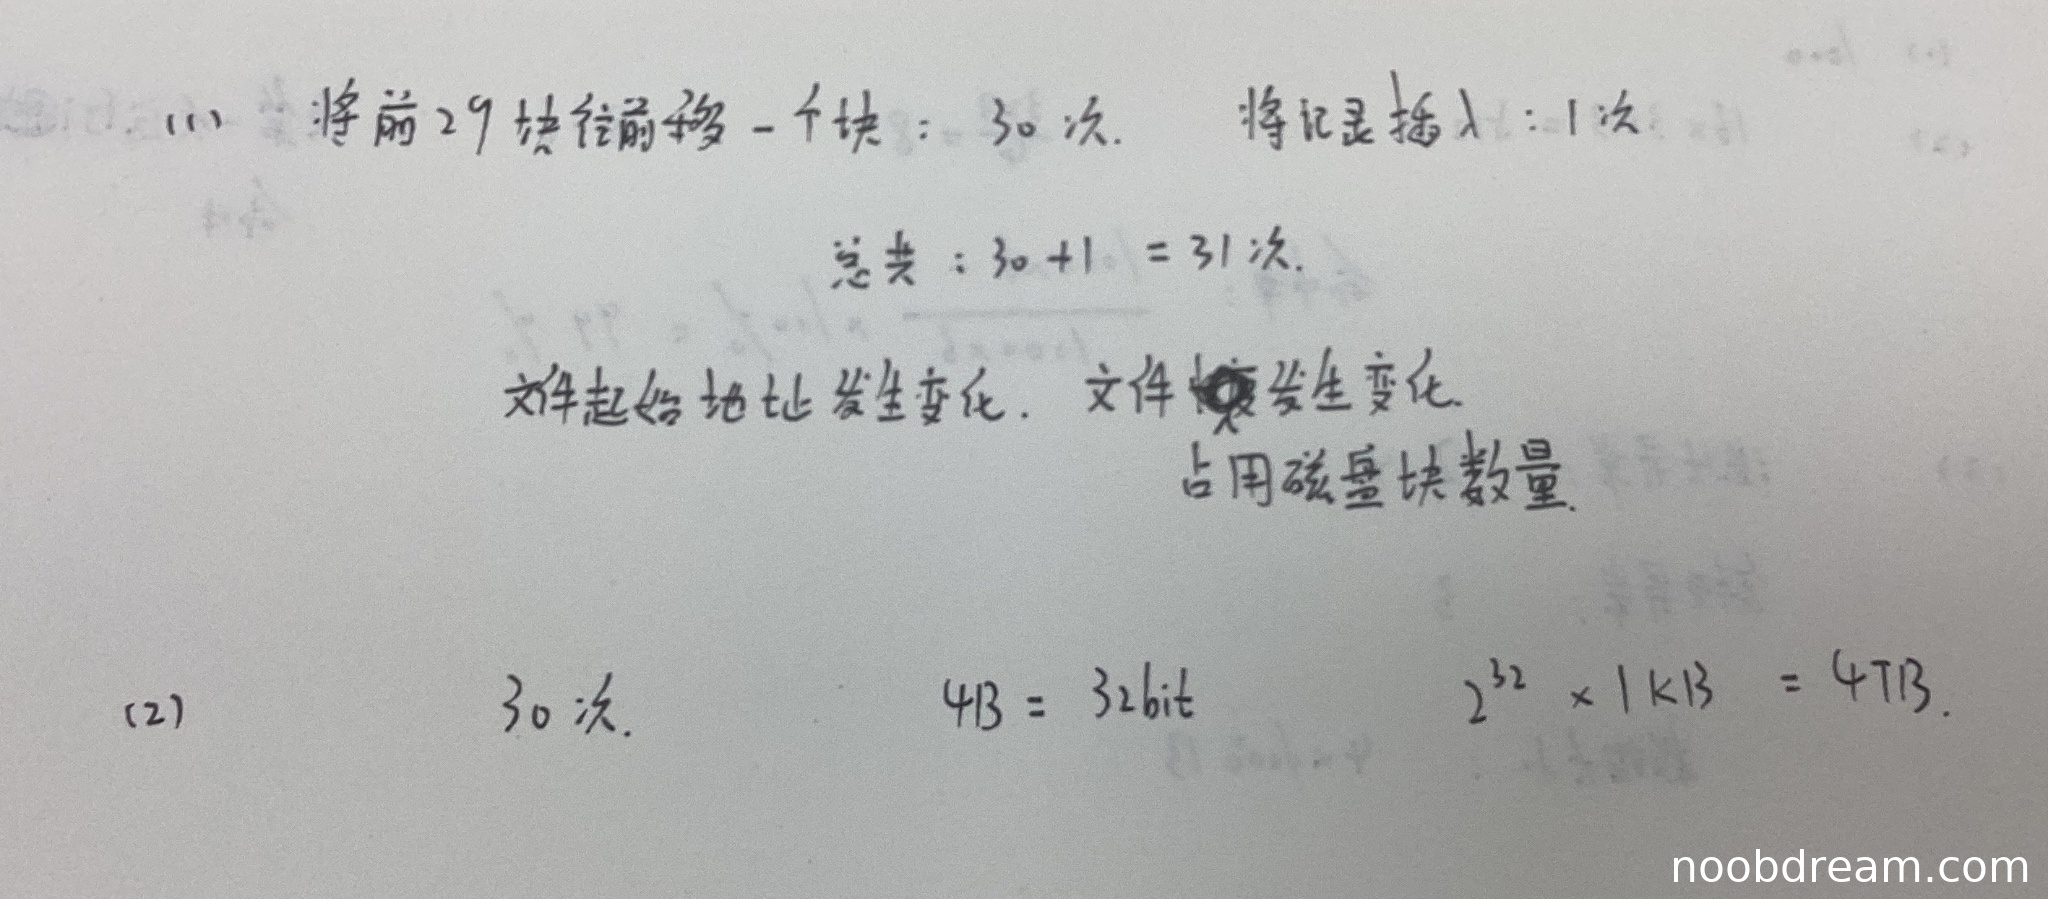 (1) 将前29块往前移一个块: 30次. 将记录插入:1次
总共:30+1 = 31次.
文件起始地址发生变化. 文件发生变化.
占用磁盘块数量.
(2) 30次. 4B = 32bit 2^32 × 1KB = 4TB.
noobdream.com